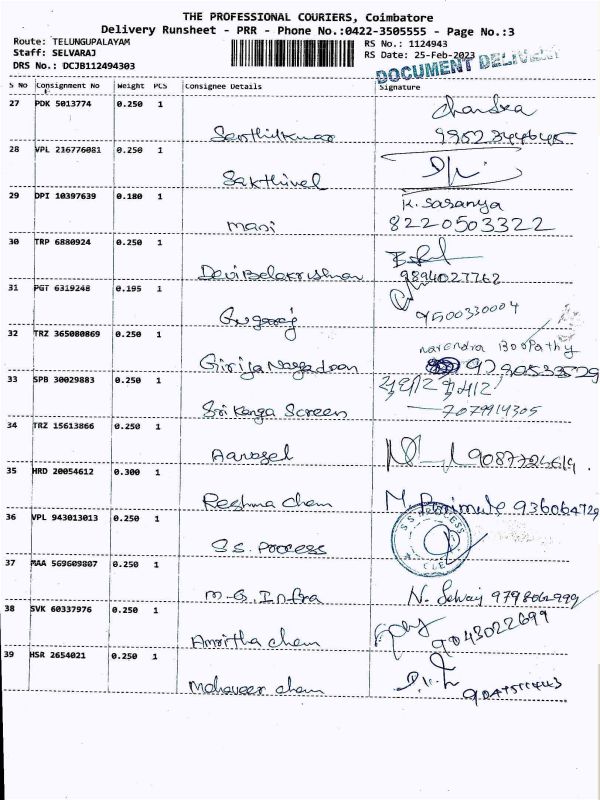 THE PROFESSIONAL COURIERS, Coimbatore
Delivery Runsheet - PRR - Phone No.:0422-3505555 - Page No.:3
Route: TELUNGUPALAYAM
RS No.: 1124943
Staff: SELVARAJ
RS Date: 25-Feb-2023
DRS No.: DCJB112494303
DOCUMENT DELIVERY
S No Consignment No Weight PCS Consignee Details Signature
27 PDK 5013774 0.250 1
Chandra
Senthilkumar
28 VPL 216776081 0.250 1
Sakthivel
29 DPI 10397639 0.180 1
K. Saranya
Mani 8220503322
30 TRP 6880924 0.250 1
Devi Balakrishnan 9894027762
31 PGT 6319248 0.195 1
9500330004
32 TRZ 365080869 0.250 1
Narendra Boopathy
Girija
33 SPB 30029883 0.250 1
Sri Kanga Screen 7079914305
34 TRZ 15613866 0.250 1
35 HRD 20054612 0.300 1
Reshma Chem
36 VPL 943013013 0.250 1
S.S. PROCESS
S.S. Process
37 MAA 569609807 0.250 1
M.G. Infra
38 SVK 60337976 0.250 1
9043022699
Amritha Chem
39 HSR 2654021 0.250 1
Mahaveer Chem